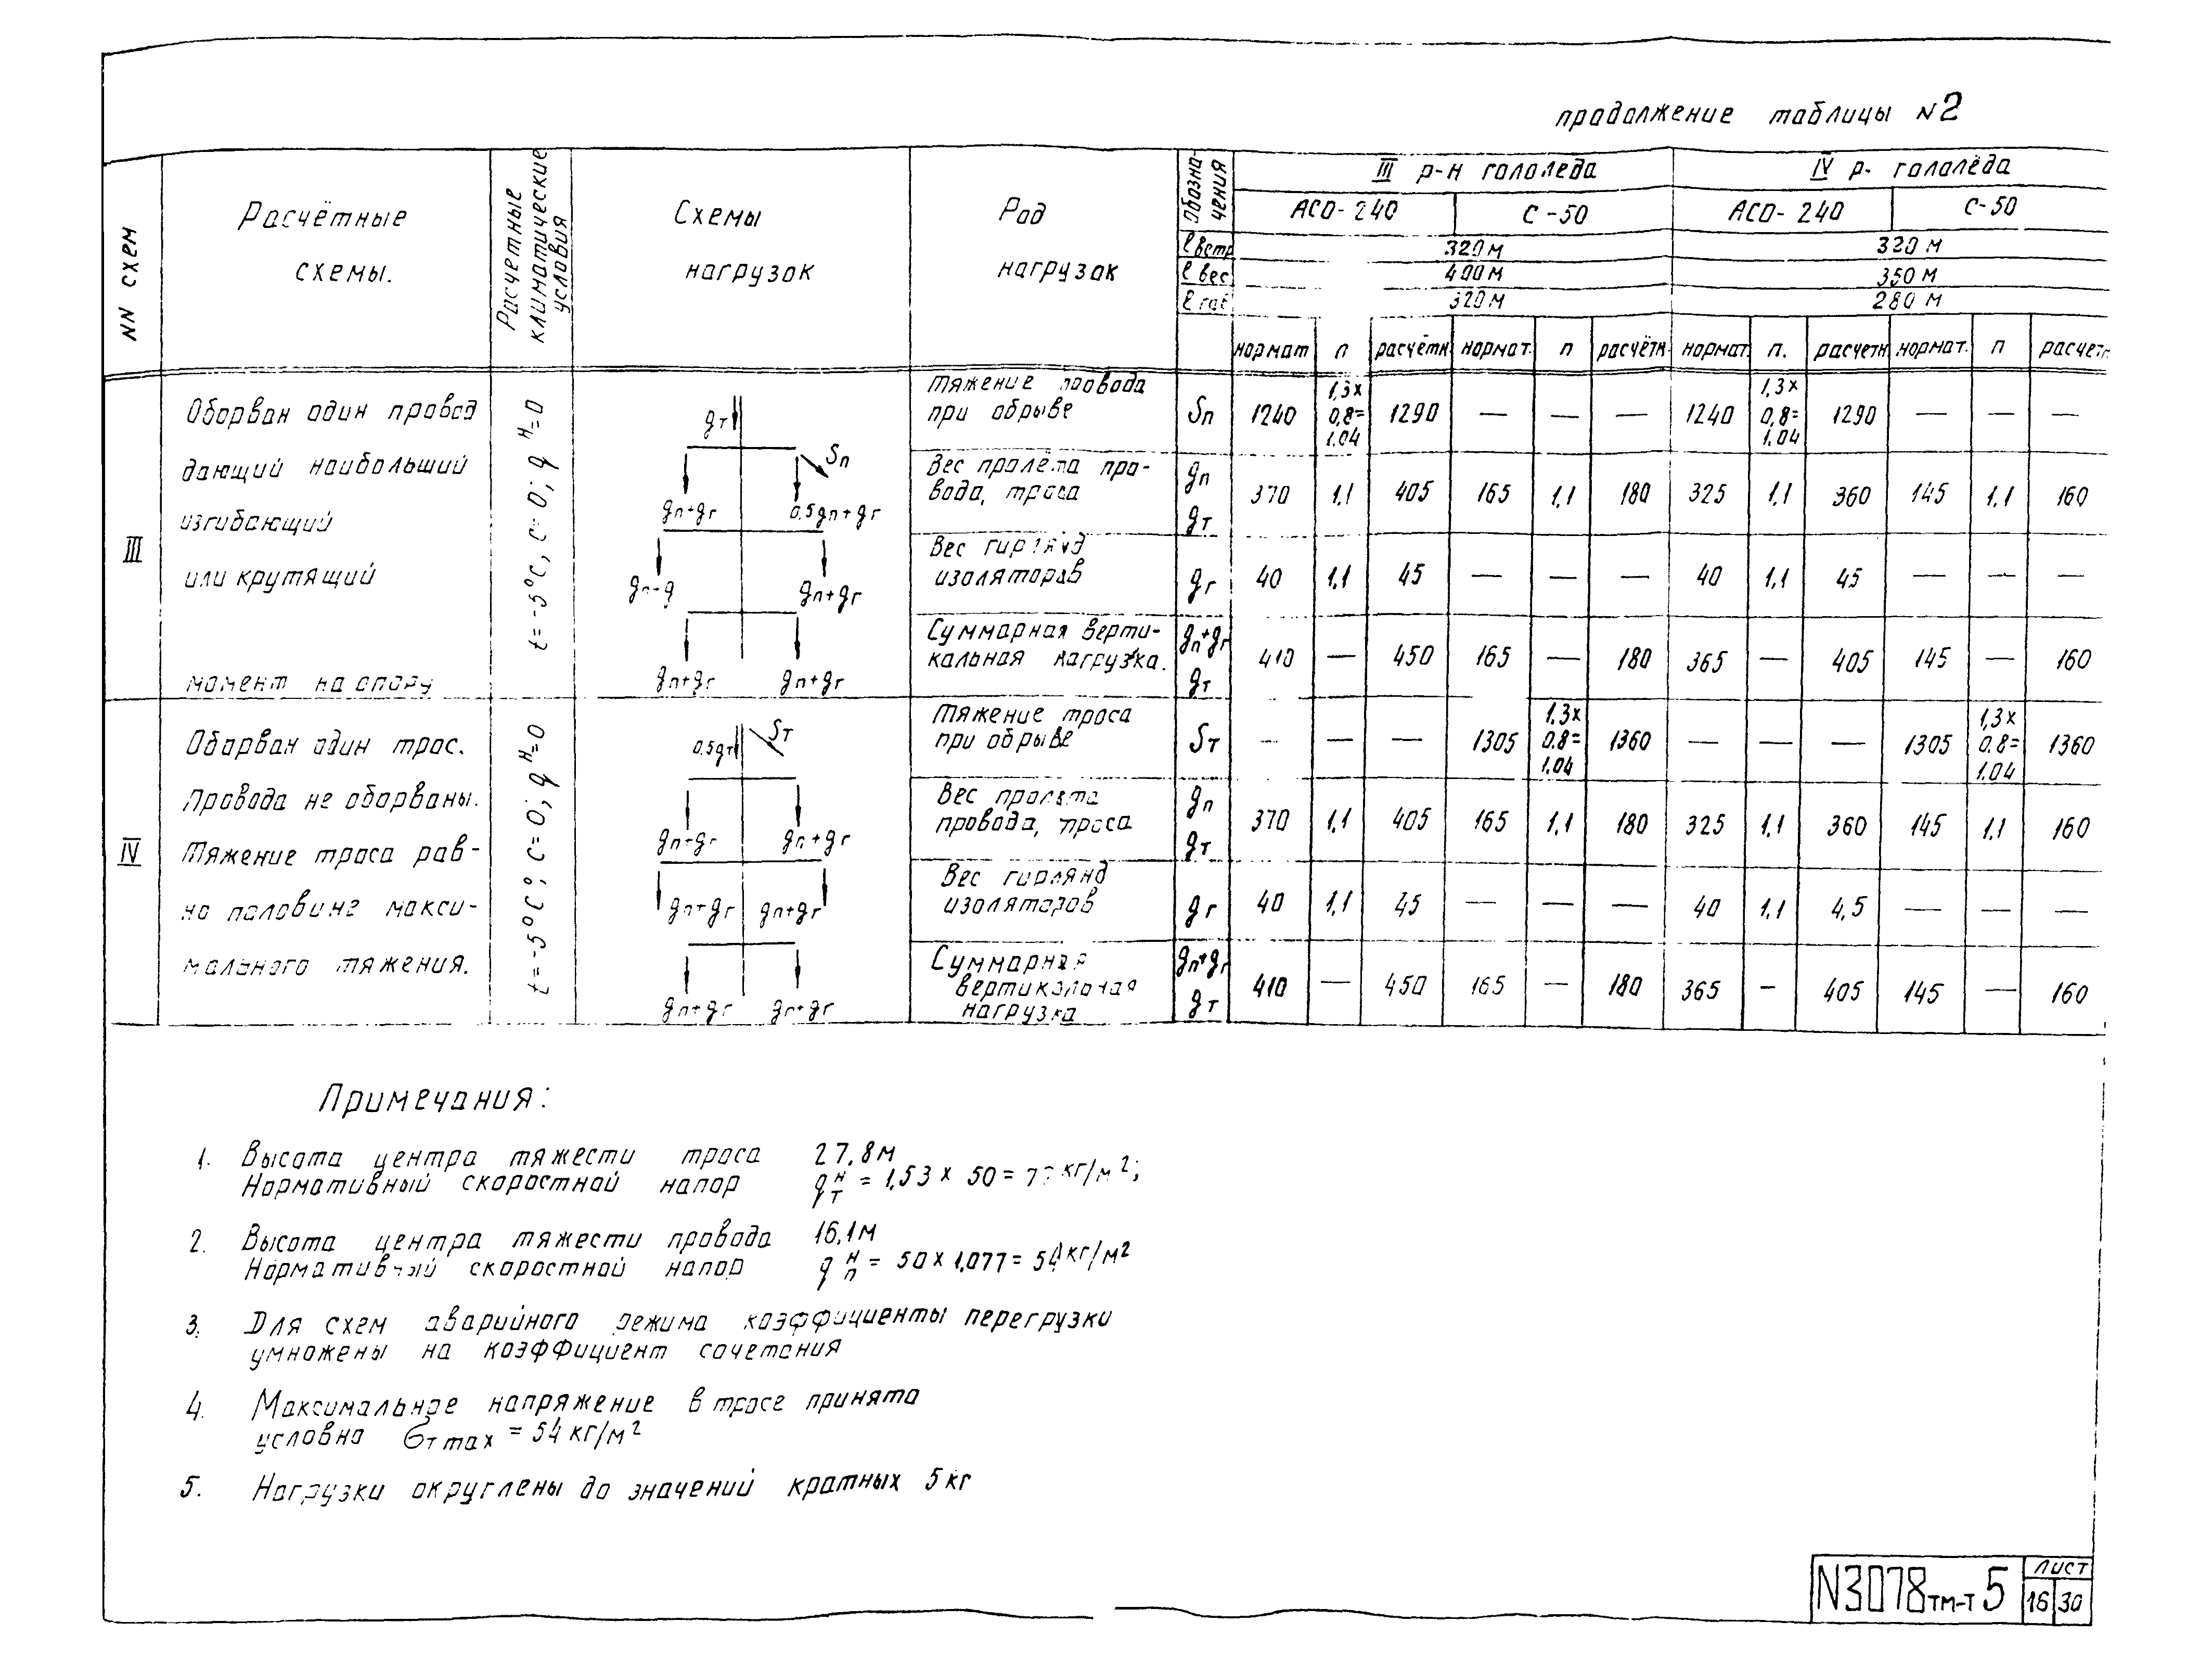 продолжение таблицы N2
NN схем
Расчётные
схемы.
Расчетные
климатические
условия
Схемы
нагрузок
Род
нагрузок
Обозна-
чения
III р-н гололеда
IV р- гололёда
АСО-240 С-50 АСО-240 С-50
ℓ ветр 320 м 320 м
ℓ вес 400 м 350 м
ℓ габ 320 м 280 м
нормат п расчётн нормат. п расчётн нормат. п. расчетн нормат. п расчетн
III
Оборван один провод
дающий наибольший
изгибающий
или крутящий
момент на опору
t=-5°С, с=0; qᴴ=0
gт
Sп
gп+gг 0,5gп+gг
gп+g gп+gг
gп+gг gп+gг
Тяжение провода
при обрыве
Sп 1240 1,3х 0,8= 1.04 1290 — — — 1240 1,3х 0,8= 1,04 1290 — — —
Вес пролёта про-
вода, троса
gп gт 370 1,1 405 165 1,1 180 325 1,1 360 145 1,1 160
Вес гирлянд
изоляторов
gг 40 1,1 45 — — — 40 1,1 45 — — —
Суммарная верти-
кальная нагрузка.
gп+gг gт 410 — 450 165 — 180 365 — 405 145 — 160
IV
Оборван один трос.
Провода не оборваны.
Тяжение троса рав-
но половине макси-
мального тяжения.
t=-5°С; С=0; qᴴ=0
0.5gт Sт
gп+gг gп+gг
gп+gг gп+gг
gп+gг gп+gг
Тяжение троса
при обрыве
Sт — — — 1305 1.3х 0.8= 1.04 1360 — — — 1305 1,3х 0.8= 1.04 1360
Вес пролета
провода, троса
gп gт 370 1,1 405 165 1,1 180 325 1,1 360 145 1,1 160
Вес гирлянд
изоляторов
gг 40 1,1 45 — — — 40 1,1 4,5 — — —
Суммарная
вертикальная
нагрузка
gп+gг gт 410 — 450 165 — 180 365 — 405 145 — 160
Примечания:
1. Высота центра тяжести троса 27,8м
Нормативный скоростной напор qᴴт = 1,53 х 50 = кг/м²;
2. Высота центра тяжести провода 16,1м
Нормативный скоростной напор qᴴп = 50 х 1,077 = 54 кг/м²
3. Для схем аварийного режима коэффициенты перегрузки
умножены на коэффициент сочетания
4. Максимальное напряжение в тросе принято
условно Gт max = 54 кг/м²
5. Нагрузки округлены до значений кратных 5кг
N3078тм-т5
лист
16 30